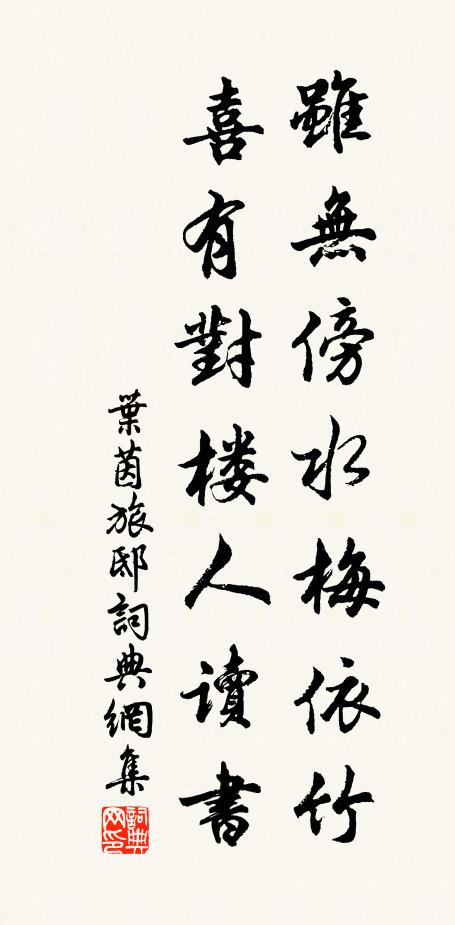 雖無傍水梅依竹
喜有對楼人讀書
葉茵旅邸詞典網集
詞典网印